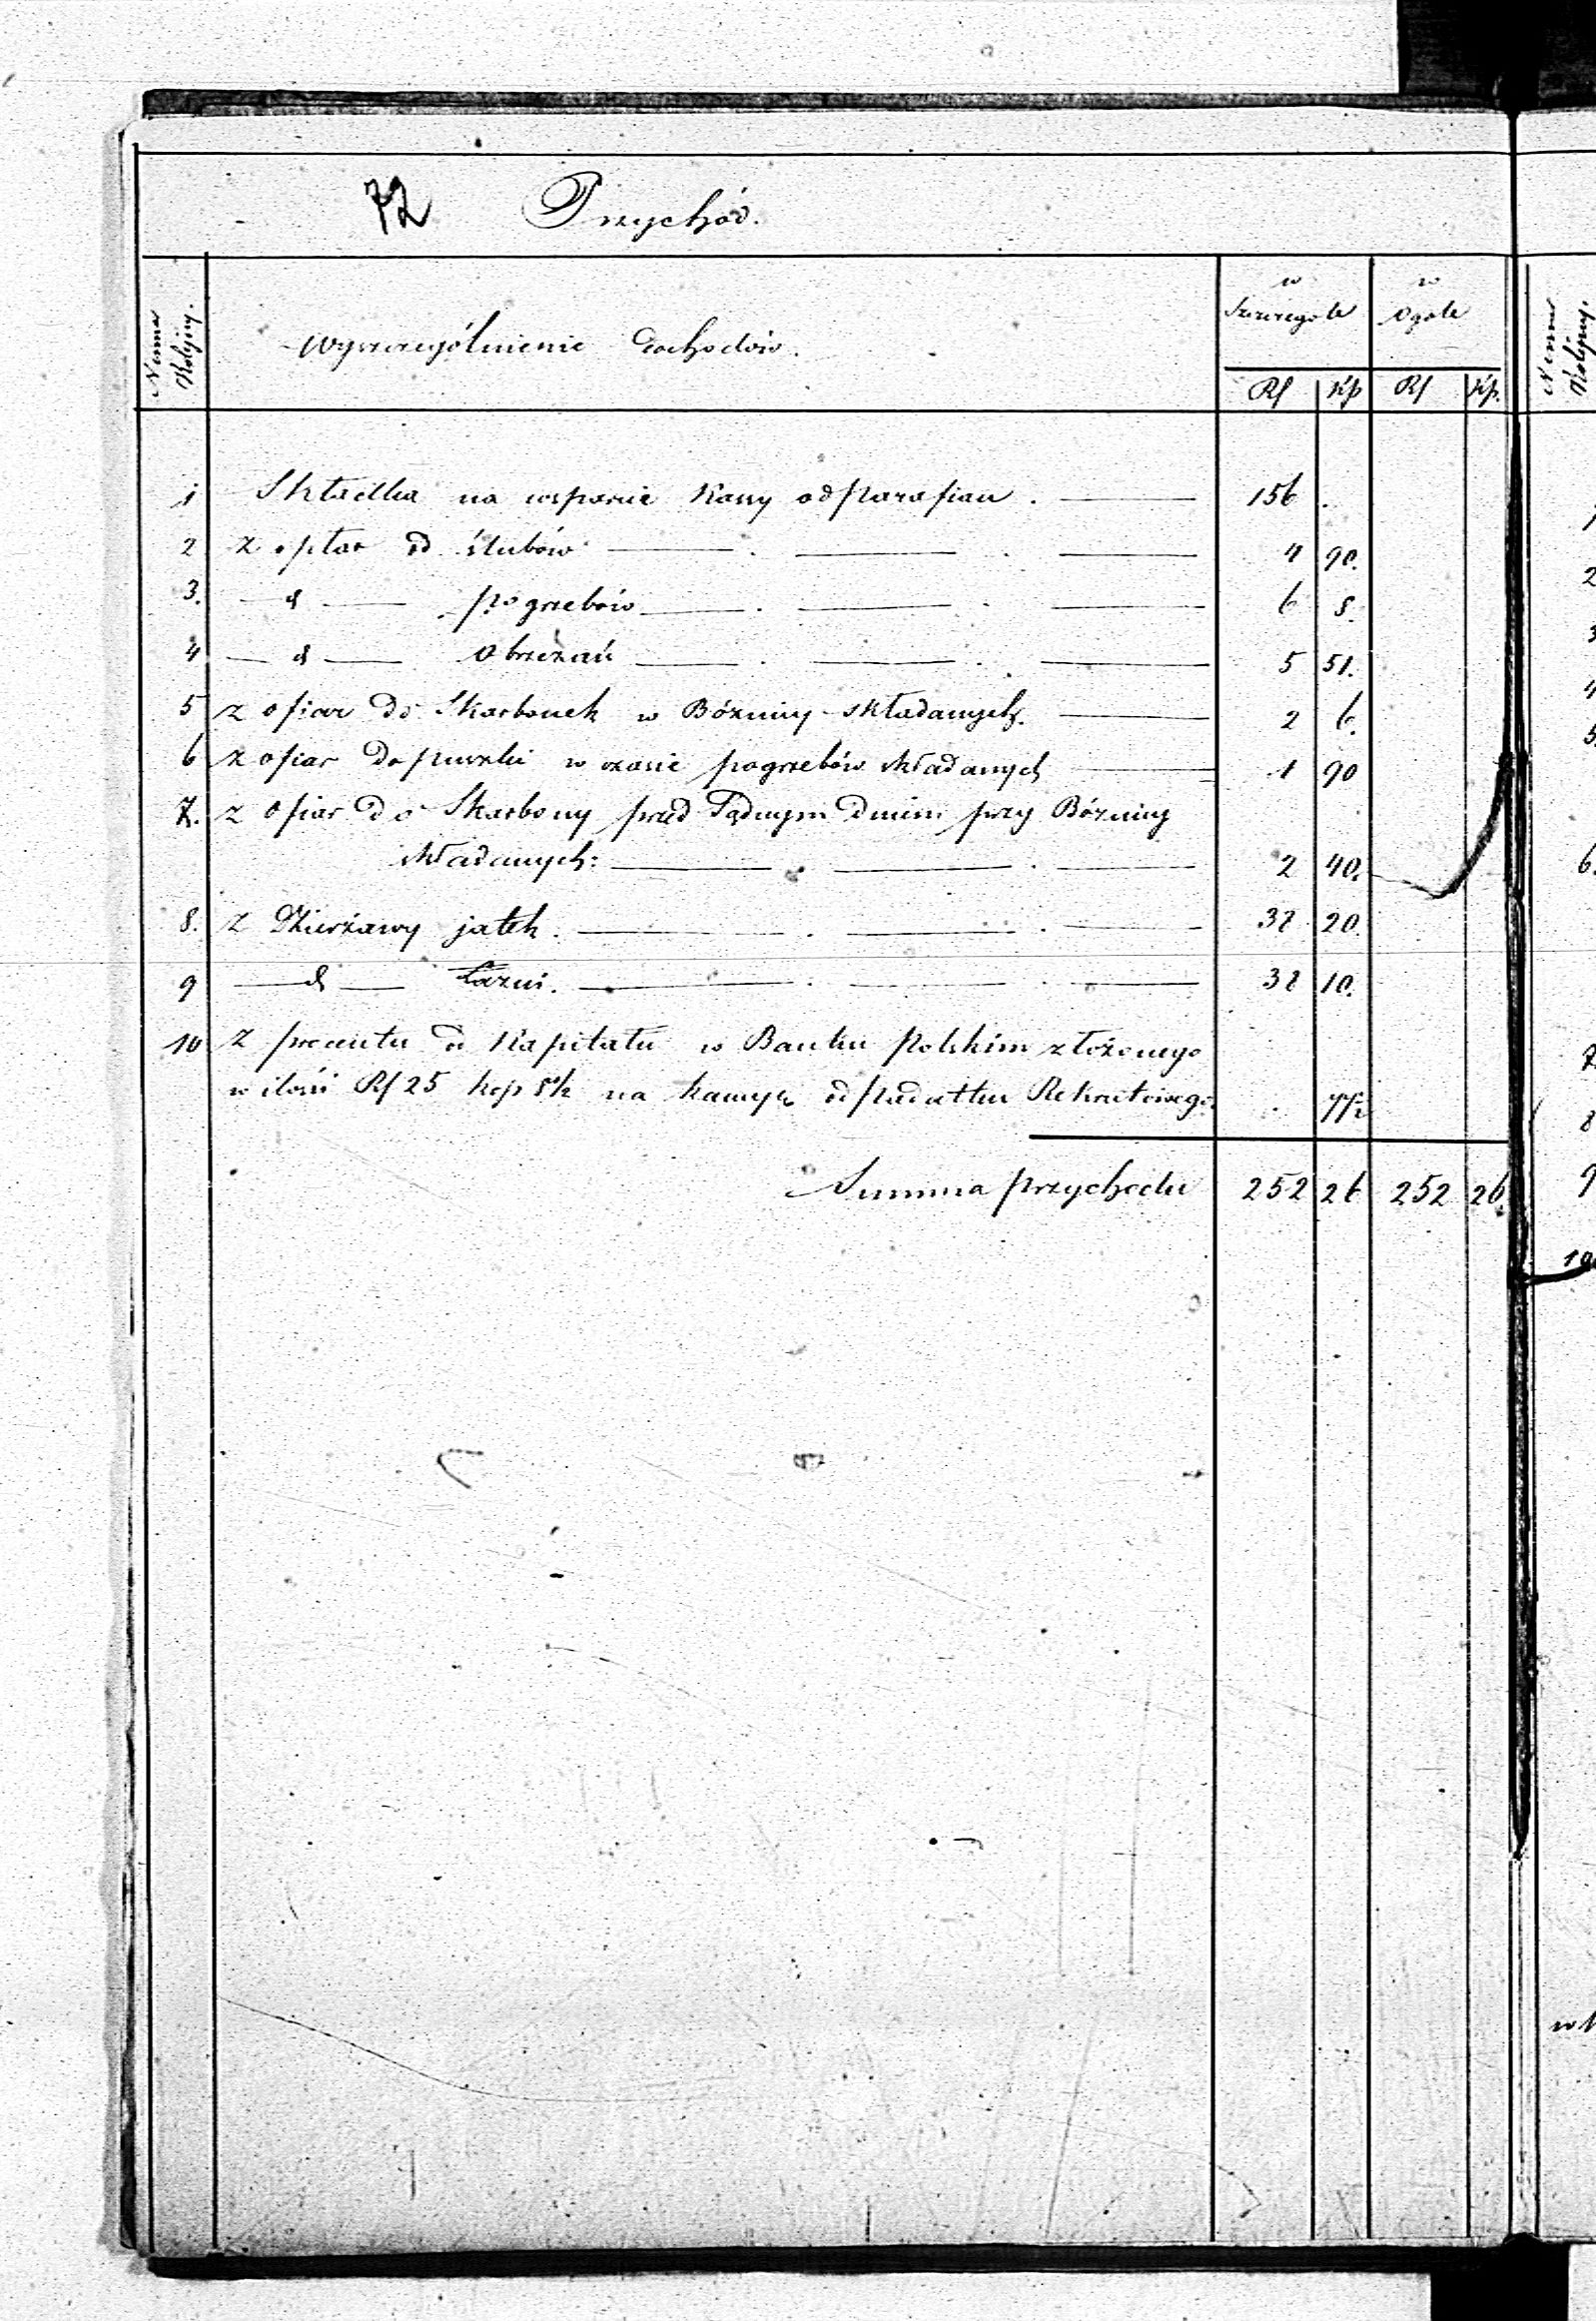 72 Przychód.
Numer Kolejny. Wyszczególnienie dochodów. w Szczególe w Ogóle
Rs Kp Rs Kp.
1 Składka na wsparcie Kassy od Parafian. 156 .
2 z opłat od ślubów 4 90.
3. — d — pogrzebów 6 8.
4 — d — Obrzezań 5 51.
5 z ofiar do Skarbonek w Bóżnicy składanych. 2 6.
6 z ofiar do puszki w czasie pogrzebów składanych 1 90
7. z ofiar do Skarbony przed Sądnym Dniem przy Bóżnicy
składanych: 2 40.
8. z Dzierżawy jatek. 32 20.
9 — d — Łaźni. 38 10.
10 z procentu od Kapitału w Banku Polskim złożonego
w ilości Rs 25 kop 8½ na od Podatku Rekrutowego .
Summa przychodu 252 26 252 26.
Numer Kolejny.